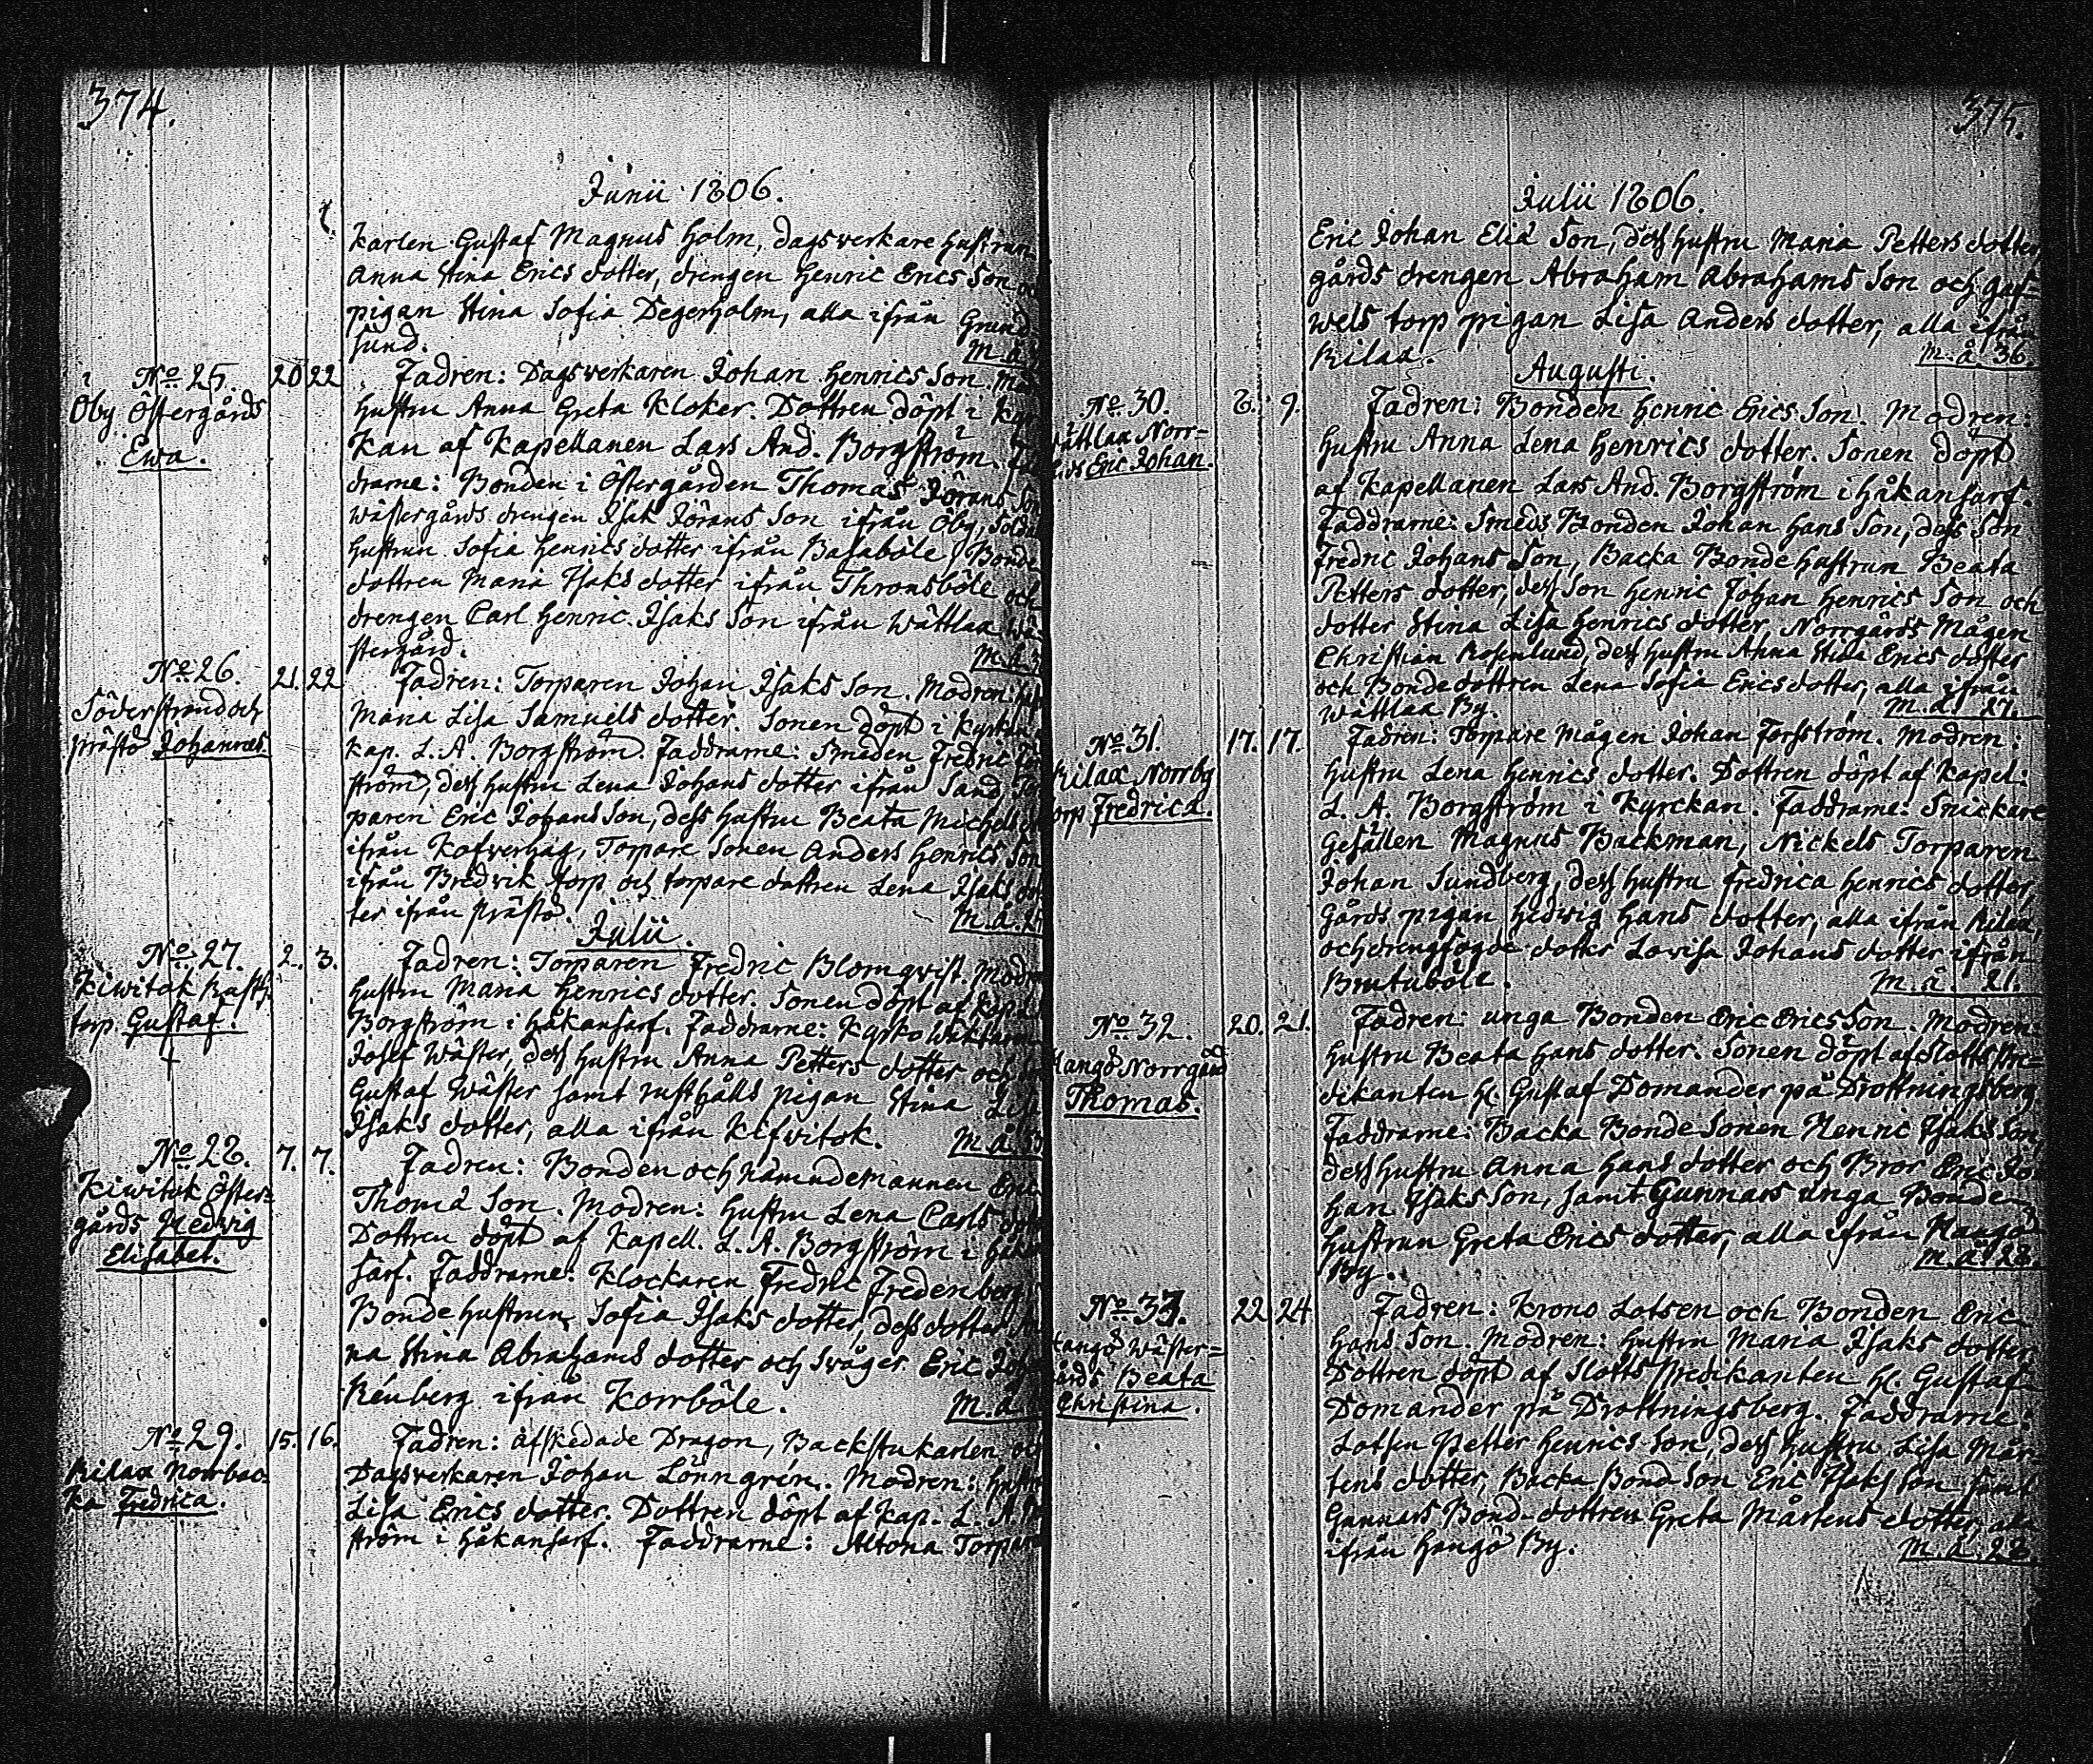 374.
Junii 1806.
Karlen Gustaf Magnus Holm, dagsverkare hustrun
Anna Stina Erics dotter, drengen Henric Erics Son
pigan Stina Sofia Degerholm, alla ifrån Grund
sund.
M. å.
No 25. 20 22
Öby Östergårds
Ewa.
Fadren: Dagsverkaren Johan Henrics Son.
hustru Anna Greta Kloker. Dottren döpt i
kan af Kapellanen Lars And. Borgström.
drarne: Bonden i Östergården Thomas Jörans Son
Wästergårds drengen Isak Jörans Son ifrån Öby,
hustrun Sofia Henrics dotter ifrån Basaböle, Bonde
dottren Maria Isaks dotter ifrån Thronsböle och
drengen Carl Henric Isaks Son ifrån Wättlax Wä-
stergård.
M. å.
No 26. 21. 22
Söderstrand och
Prästö Johannes.
Fadren: Torparen Johan Isaks Son. Modren:
Maria Lisa Samuels dotter. Sonen döpt i Kyrkan
Kap. L. A. Borgström. Faddrarne: Smeden Fredric
ström, dess hustru Lena Johans dotter ifrån Sand,
paren Eric Johans Son, dess hustru Beata Michels
ifrån Kofverhag, Torpare Sonen Anders Henrics Son
ifrån Bredvik torp och torpare dottren Lena Isaks dot
ter ifrån Prästö.
M. å. 25
Julii.
No 27. 2. 3.
Kiwitok Rusth.
torp. Gustaf.
†
Fadren: Torparen Fredric Blomqwist. Modren
hustru Maria Henrics dotter. Sonen döpt af Kap.
Borgström i Håkansarf. Faddrarne: Kyrko Wäktaren
Josef Wäster, dess hustru Anna Petters dotter och
Gustaf Wäster samt rusthålls pigan Stina Lisa
Isaks dotter, alla ifrån Kifvitok.
M. å.
No 28. 7. 7.
Kiwitok Öster-
gårds Hedvig
Elisabet.
Fadren: Bonden och nämndemannen Eric
Thomä Son. Modren: hustru Lena Carls
Dottren döpt af Kapell. L. A. Borgström i Håkan
sarf. Faddrarne: Klockaren Fredric Fredenberg,
Bonde hustrun Sofia Isaks dotter, dess dotter
na Stina Abrahams dotter och Svåger Eric
Rénberg ifrån Korrböle.
M. å.
No 29. 15. 16.
Rilax Norrbac-
ka Fredrica.
Fadren: afskedade Dragon, Backstukarlen och
Dagsverkaren Johan Lönngrén. Modren: hustru
Lisa Erics dotter. Dottren döpt af Kap. L. A.
ström i Håkansarf. Faddrarne: Altona Torpare
375.
Julii 1806.
Eric Johan Eliä Son, dess hustru Maria Petters dotter,
gårds drengen Abraham Abrahams Son och gaf-
wels torp pigan Lisa Anders dotter, alla ifrån
Rilax.
M. å. 36.
Augusti.
No 30. 8. 9.
Wättlax Norr-
Eric Johan.
Fadren: Bonden Henric Erics Son. Modren:
hustru Anna Lena Henrics dotter. Sonen döpt
af Kapellanen Lars And. Borgström i Håkansarf.
Faddrarne: Smeds Bonden Johan Hans Son, dess Son
Fredric Johans Son, Backa Bonde hustrun Beata
Petters dotter, dess Son Henric Johan Henrics Son och
dotter Stina Lisa Henrics dotter, Norrgårds Mågen
Christian Rosenlund, dess hustru Anna Stina Erics dotter
och Bonde dottren Lena Sofia Erics dotter, alla ifrån
Wättlax By.
M. å. 27.
No 31. 17. 17.
Rilax Norrby
torp Fredrica.
Fadren: Torpare Mågen Johan Forsström. Modren:
hustru Lena Henrics dotter. Dottren döpt af Kapel:
L. A. Borgström i Kyrckan. Faddrarne: Snickare
Gesällen Magnus Backman, Nickels Torparen
Johan Sundberg, dess hustru Fredrica Henrics dotter,
Gårds pigan Hedvig Hans dotter, alla ifrån Rilax,
och drengfogde dotter Lovisa Johans dotter ifrån
Brutuböle.
M. å. 21.
No 32. 20. 21.
Hangö Norrgård
Thomas.
Fadren: unga Bonden Eric Erics Son. Modren:
hustru Beata Hans dotter. Sonen döpt af Slotts Pre-
dikanten H. Gustaf Domander på Drottningsberg
Faddrarne: Backa Bonde Sonen Henric Isaks Son,
dess hustru Anna Hans dotter och Bror Eric Jo-
han Isaks Son, samt Gunnars unga Bonde-
hustrun Greta Erics dotter, alla ifrån Hangö
By.
M. å. 28.
No 33. 22 24
Hangö Wäster-
gårds Beata
Christina.
Fadren: Krono Lotsen och Bonden Eric
Hans Son. Modren: hustru Maria Isaks dotter.
Dottren döpt af Slotts Predikanten H. Gustaf
Domander på Drottningsberg. Faddrarne:
Lotsen Petter Henrics Son, dess hustru Lisa Mår-
tens dotter, Backa Bond Son Eric Isaks Son samt
Gunnars Bond-dottren Greta Mårtens dotter, alla
ifrån Hangö By.
M. å. 28.